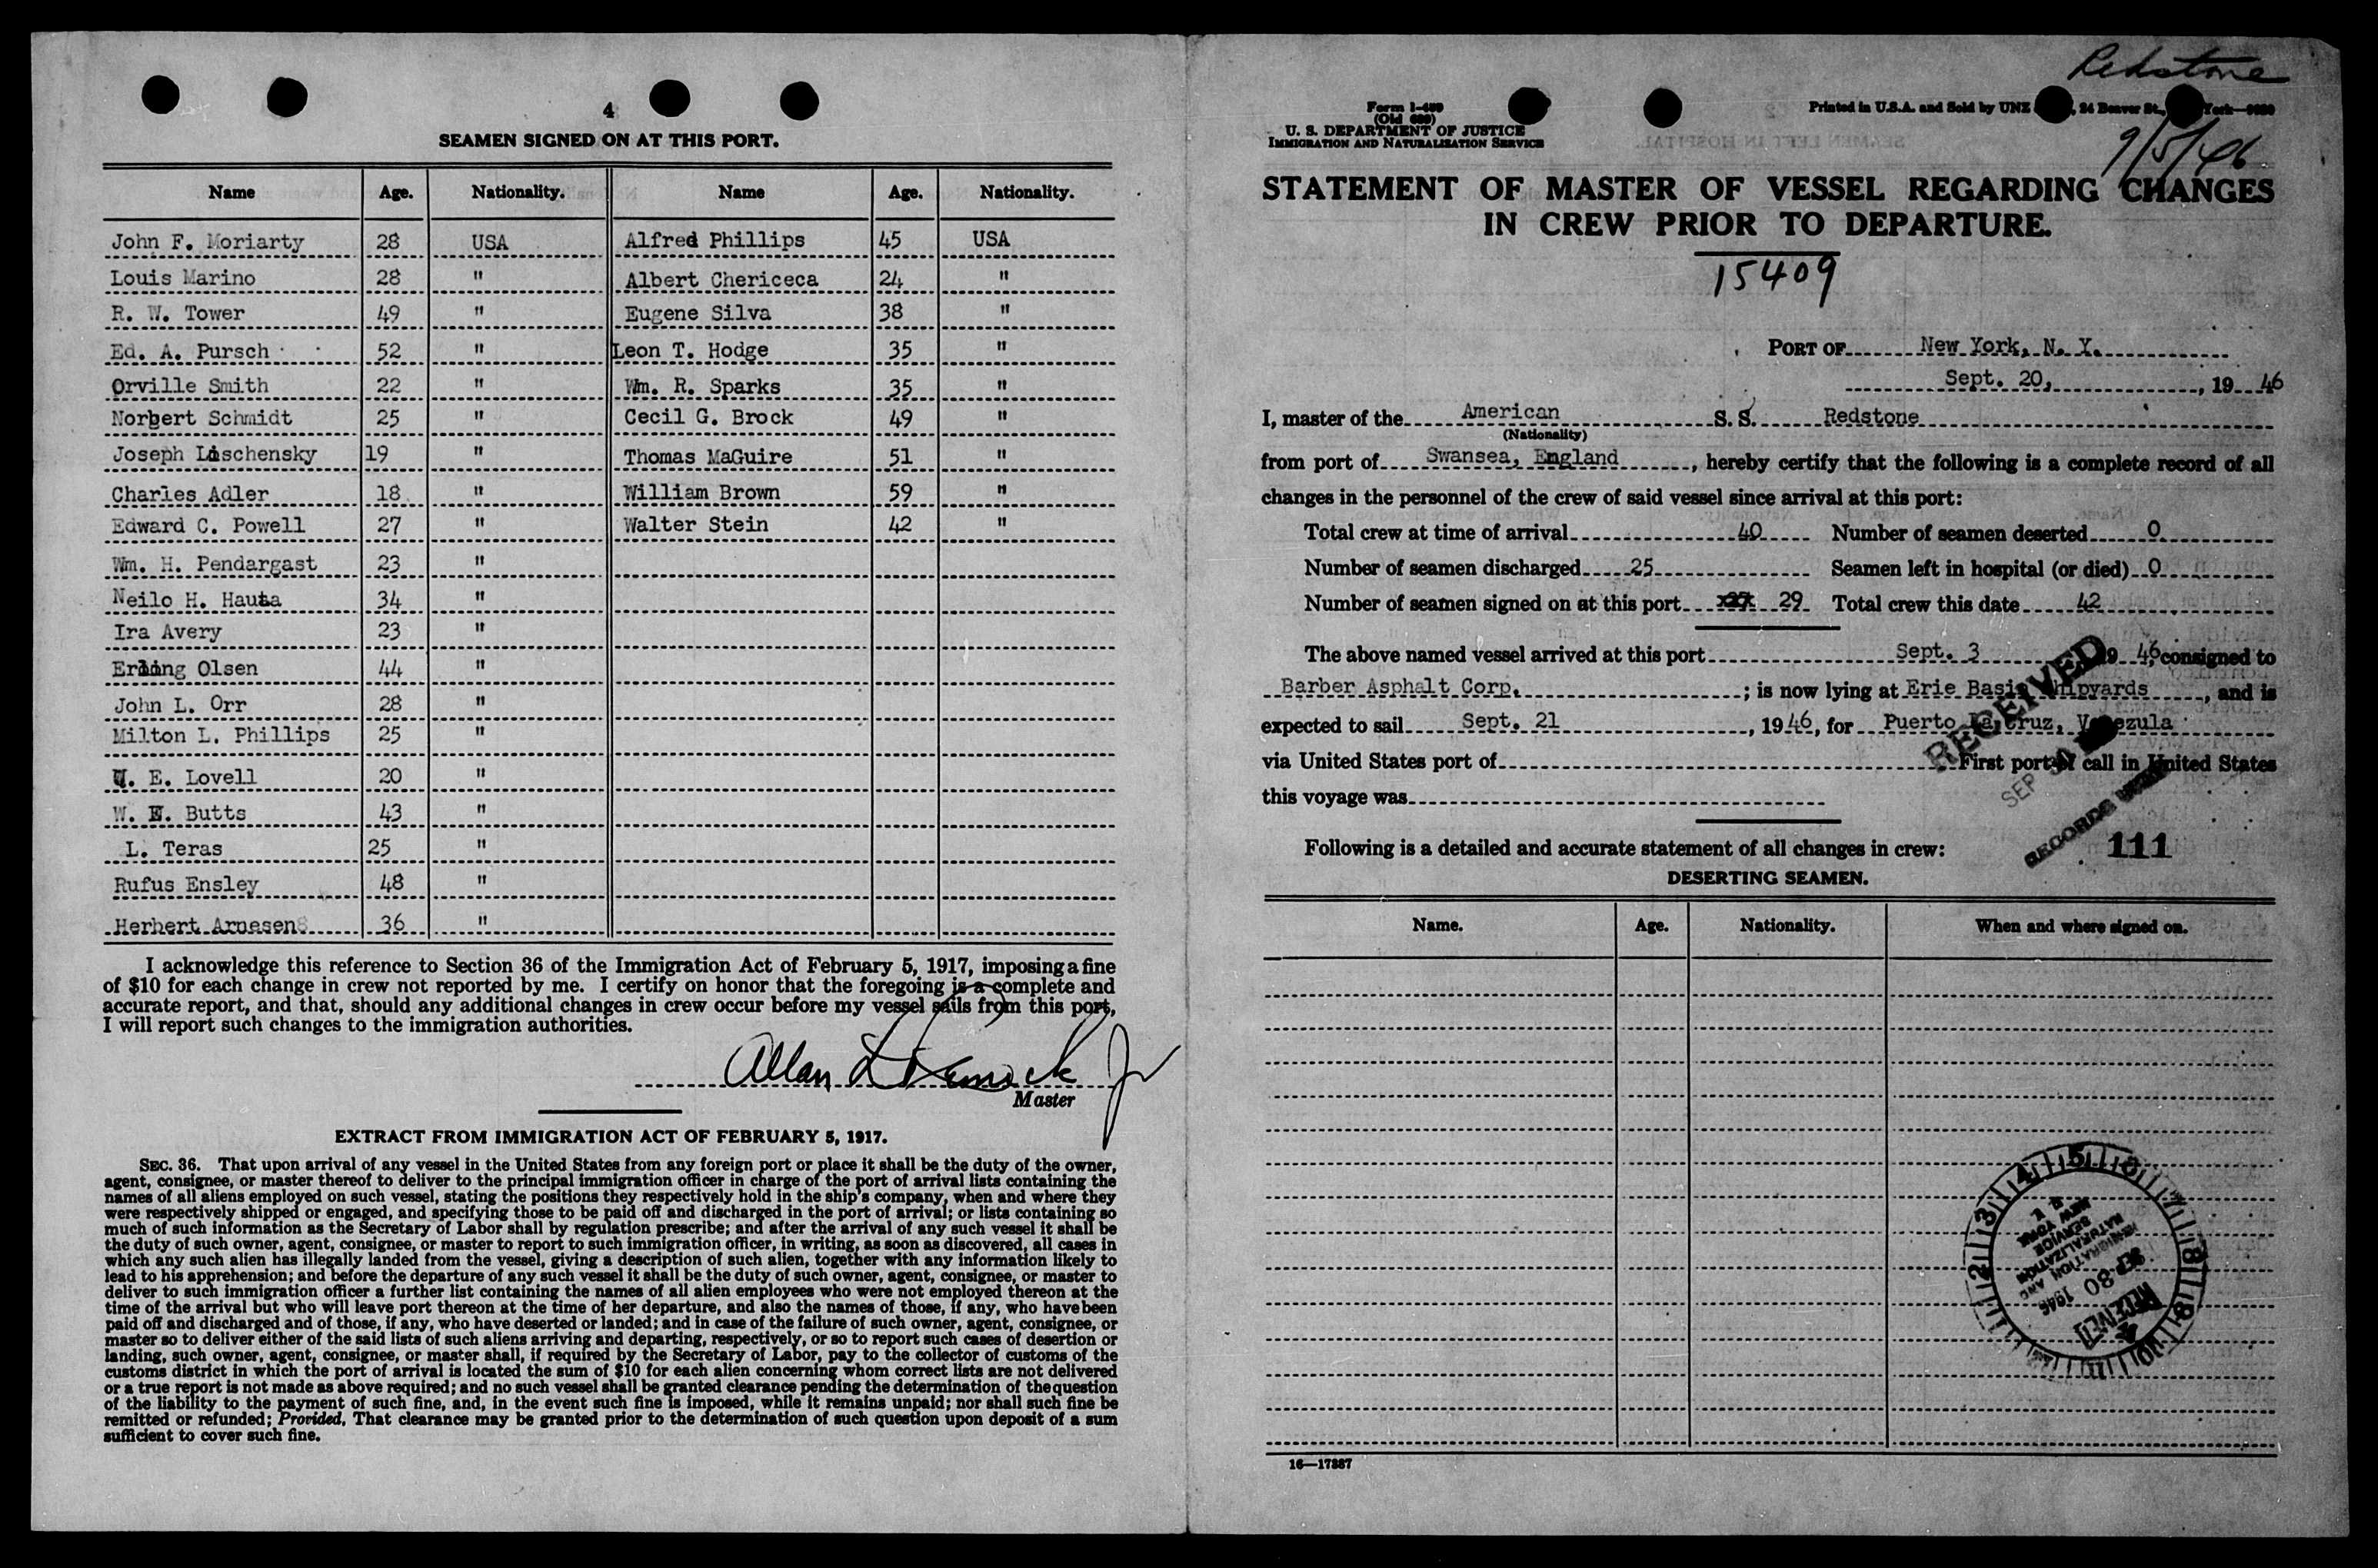 4
SEAMEN SIGNED ON AT THIS PORT.
Name Age. Nationality. Name Age. Nationality.
John F. Moriarty 28 USA Alfred Phillips 45 USA
Louis Marino 28 " Albert Chericeca 24 "
R. W. Tower 49 " Eugene Silva 38 "
Ed. A. Pursch 52 " Leon T. Hodge 35 "
Orville Smith 22 " Wm. R. Sparks 35 "
Norbert Schmidt 25 " Cecil G. Brock 49 "
Joseph Lischensky 19 " Thomas MaGuire 51 "
Charles Adler 18 " William Brown 59 "
Edward C. Powell 27 " Walter Stein 42 "
Wm. H. Pendargast 23 "
Neilo H. Hauta 34 "
Ira Avery 23 "
Erling Olsen 44 "
John L. Orr 28 "
Milton L. Phillips 25 "
E. Lovell 20 "
W. E. Butts 43 "
L. Teras 25 "
Rufus Ensley 48 "
Herbert Arnesen 36 "
I acknowledge this reference to Section 36 of the Immigration Act of February 5, 1917, imposing a fine
of $10 for each change in crew not reported by me. I certify on honor that the foregoing is a complete and
accurate report, and that, should any additional changes in crew occur before my vessel sails from this port,
I will report such changes to the immigration authorities.
Allan Jr
Master
EXTRACT FROM IMMIGRATION ACT OF FEBRUARY 5, 1917.
SEC. 36. That upon arrival of any vessel in the United States from any foreign port or place it shall be the duty of the owner,
agent, consignee, or master thereof to deliver to the principal immigration officer in charge of the port of arrival lists containing the
names of all aliens employed on such vessel, stating the positions they respectively hold in the ship's company, when and where they
were respectively shipped or engaged, and specifying those to be paid off and discharged in the port of arrival; or lists containing so
much of such information as the Secretary of Labor shall by regulation prescribe; and after the arrival of any such vessel it shall be
the duty of such owner, agent, consignee, or master to report to such immigration officer, in writing, as soon as discovered, all cases in
which any such alien has illegally landed from the vessel, giving a description of such alien, together with any information likely to
lead to his apprehension; and before the departure of any such vessel it shall be the duty of such owner, agent, consignee, or master to
deliver to such immigration officer a further list containing the names of all alien employees who were not employed thereon at the
time of the arrival but who will leave port thereon at the time of her departure, and also the names of those, if any, who have been
paid off and discharged and of those, if any, who have deserted or landed; and in case of the failure of such owner, agent, consignee, or
master so to deliver either of the said lists of such aliens arriving and departing, respectively, or so to report such cases of desertion or
landing, such owner, agent, consignee, or master shall, if required by the Secretary of Labor, pay to the collector of customs of the
customs district in which the port of arrival is located the sum of $10 for each alien concerning whom correct lists are not delivered
or a true report is not made as above required; and no such vessel shall be granted clearance pending the determination of the question
of the liability to the payment of such fine, and, in the event such fine is imposed, while it remains unpaid; nor shall such fine be
remitted or refunded; Provided, That clearance may be granted prior to the determination of such question upon deposit of a sum
sufficient to cover such fine.
Redstone
Form I-489
(Old 689)
U. S. DEPARTMENT OF JUSTICE
IMMIGRATION AND NATURALIZATION SERVICE
Printed in U.S.A. and Sold by UNZ , 24 Beaver St., York
9/5/46
STATEMENT OF MASTER OF VESSEL REGARDING CHANGES
IN CREW PRIOR TO DEPARTURE.
15409
PORT OF New York, N. Y.
Sept. 20, , 19 46
I, master of the American S. S. Redstone
(Nationality)
from port of Swansea, England , hereby certify that the following is a complete record of all
changes in the personnel of the crew of said vessel since arrival at this port:
Total crew at time of arrival 40 Number of seamen deserted 0
Number of seamen discharged 25 Seamen left in hospital (or died) 0
Number of seamen signed on at this port 29 Total crew this date 42
The above named vessel arrived at this port Sept. 3 19 46, consigned to
Barber Asphalt Corp. ; is now lying at Erie Basin Shipyards , and is
expected to sail Sept. 21 , 1946, for Puerto La Cruz, Venezula
via United States port of First port of call in United States
this voyage was
RECEIVED
SEP
RECORDS
Following is a detailed and accurate statement of all changes in crew: 111
DESERTING SEAMEN.
Name. Age. Nationality. When and where signed on.
RECEIVED
SEP 30 1946
IMMIGRATION AND
NATURALIZATION
SERVICE
NEW YORK
16—17887